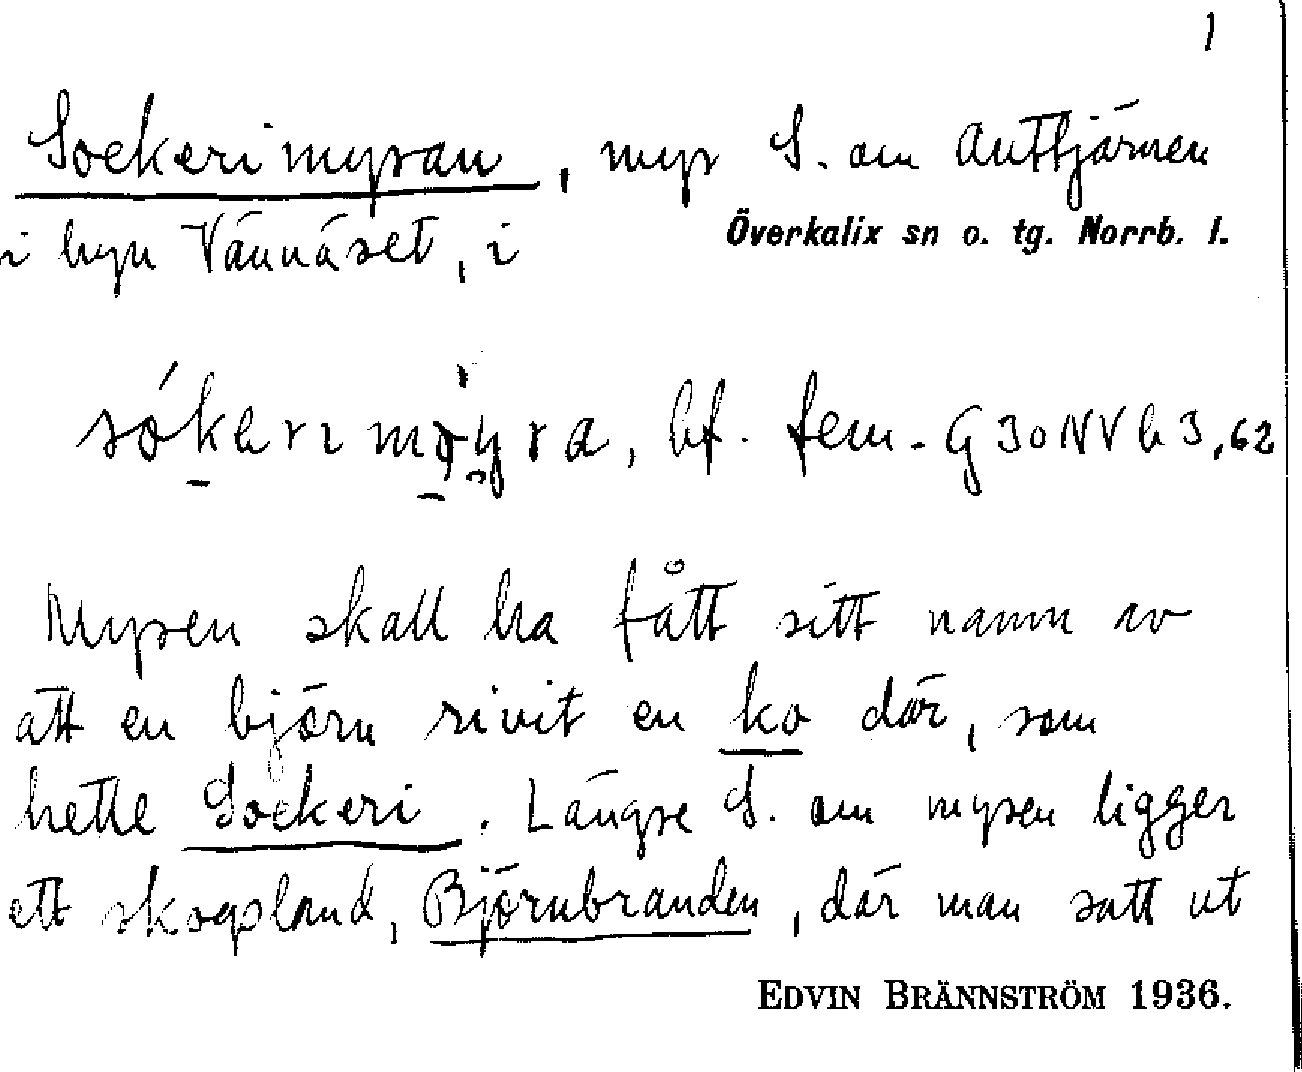 1
Sockerimyran, myr S. om Anttjärnen
i byn Vännäset, i Överkalix sn o. tg. Norrb. l.
bf. fem. G30NVh3,62
Myren skall ha fått sitt namn av
att en björn rivit en ko där, som
hette Sockeri. Längre S. om myren ligger
ett skogsland, Björnbranden, där man satt ut
EDVIN BRÄNNSTRÖM 1936.